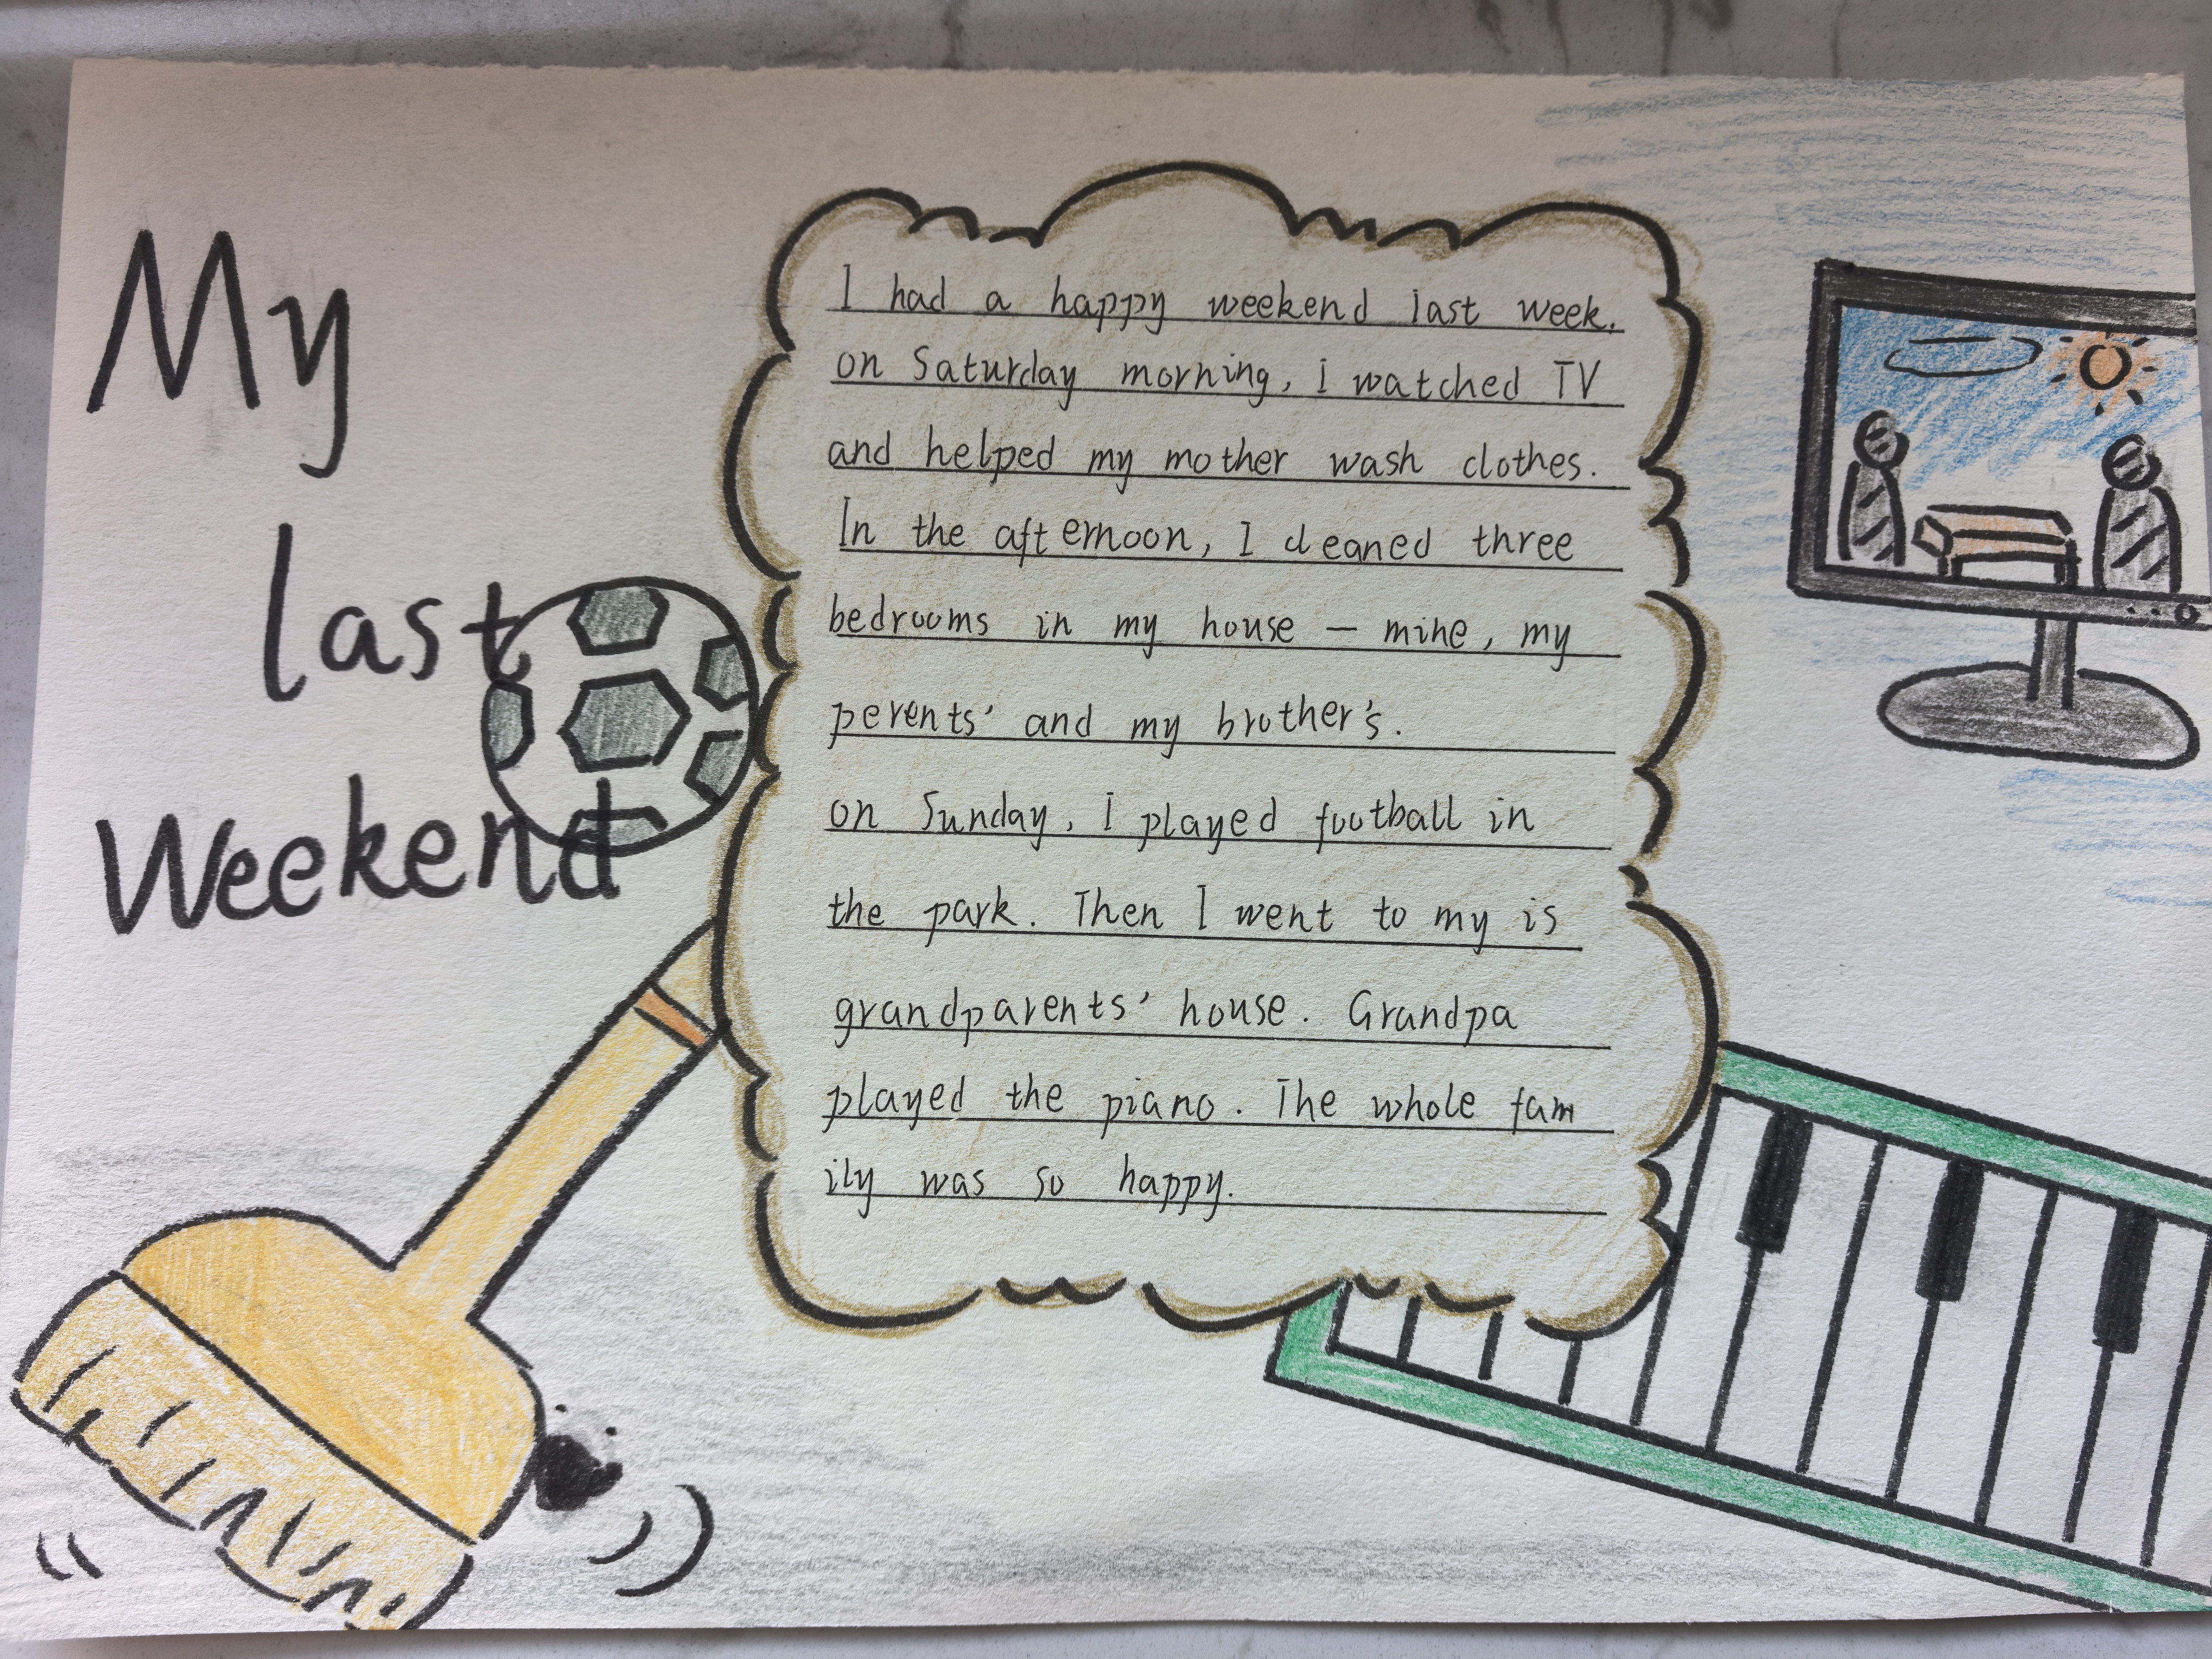 My
last
Weekend
I had a happy weekend last week.
on Saturday morning, i watched TV
and helped my mother wash clothes.
In the afternoon, I cleaned three
bedrooms in my house — mine, my
perents' and my brother's.
on Sunday, I played football in
the park. Then I went to my is
grandparents' house. Grandpa
played the piano. The whole fam
ily was so happy.